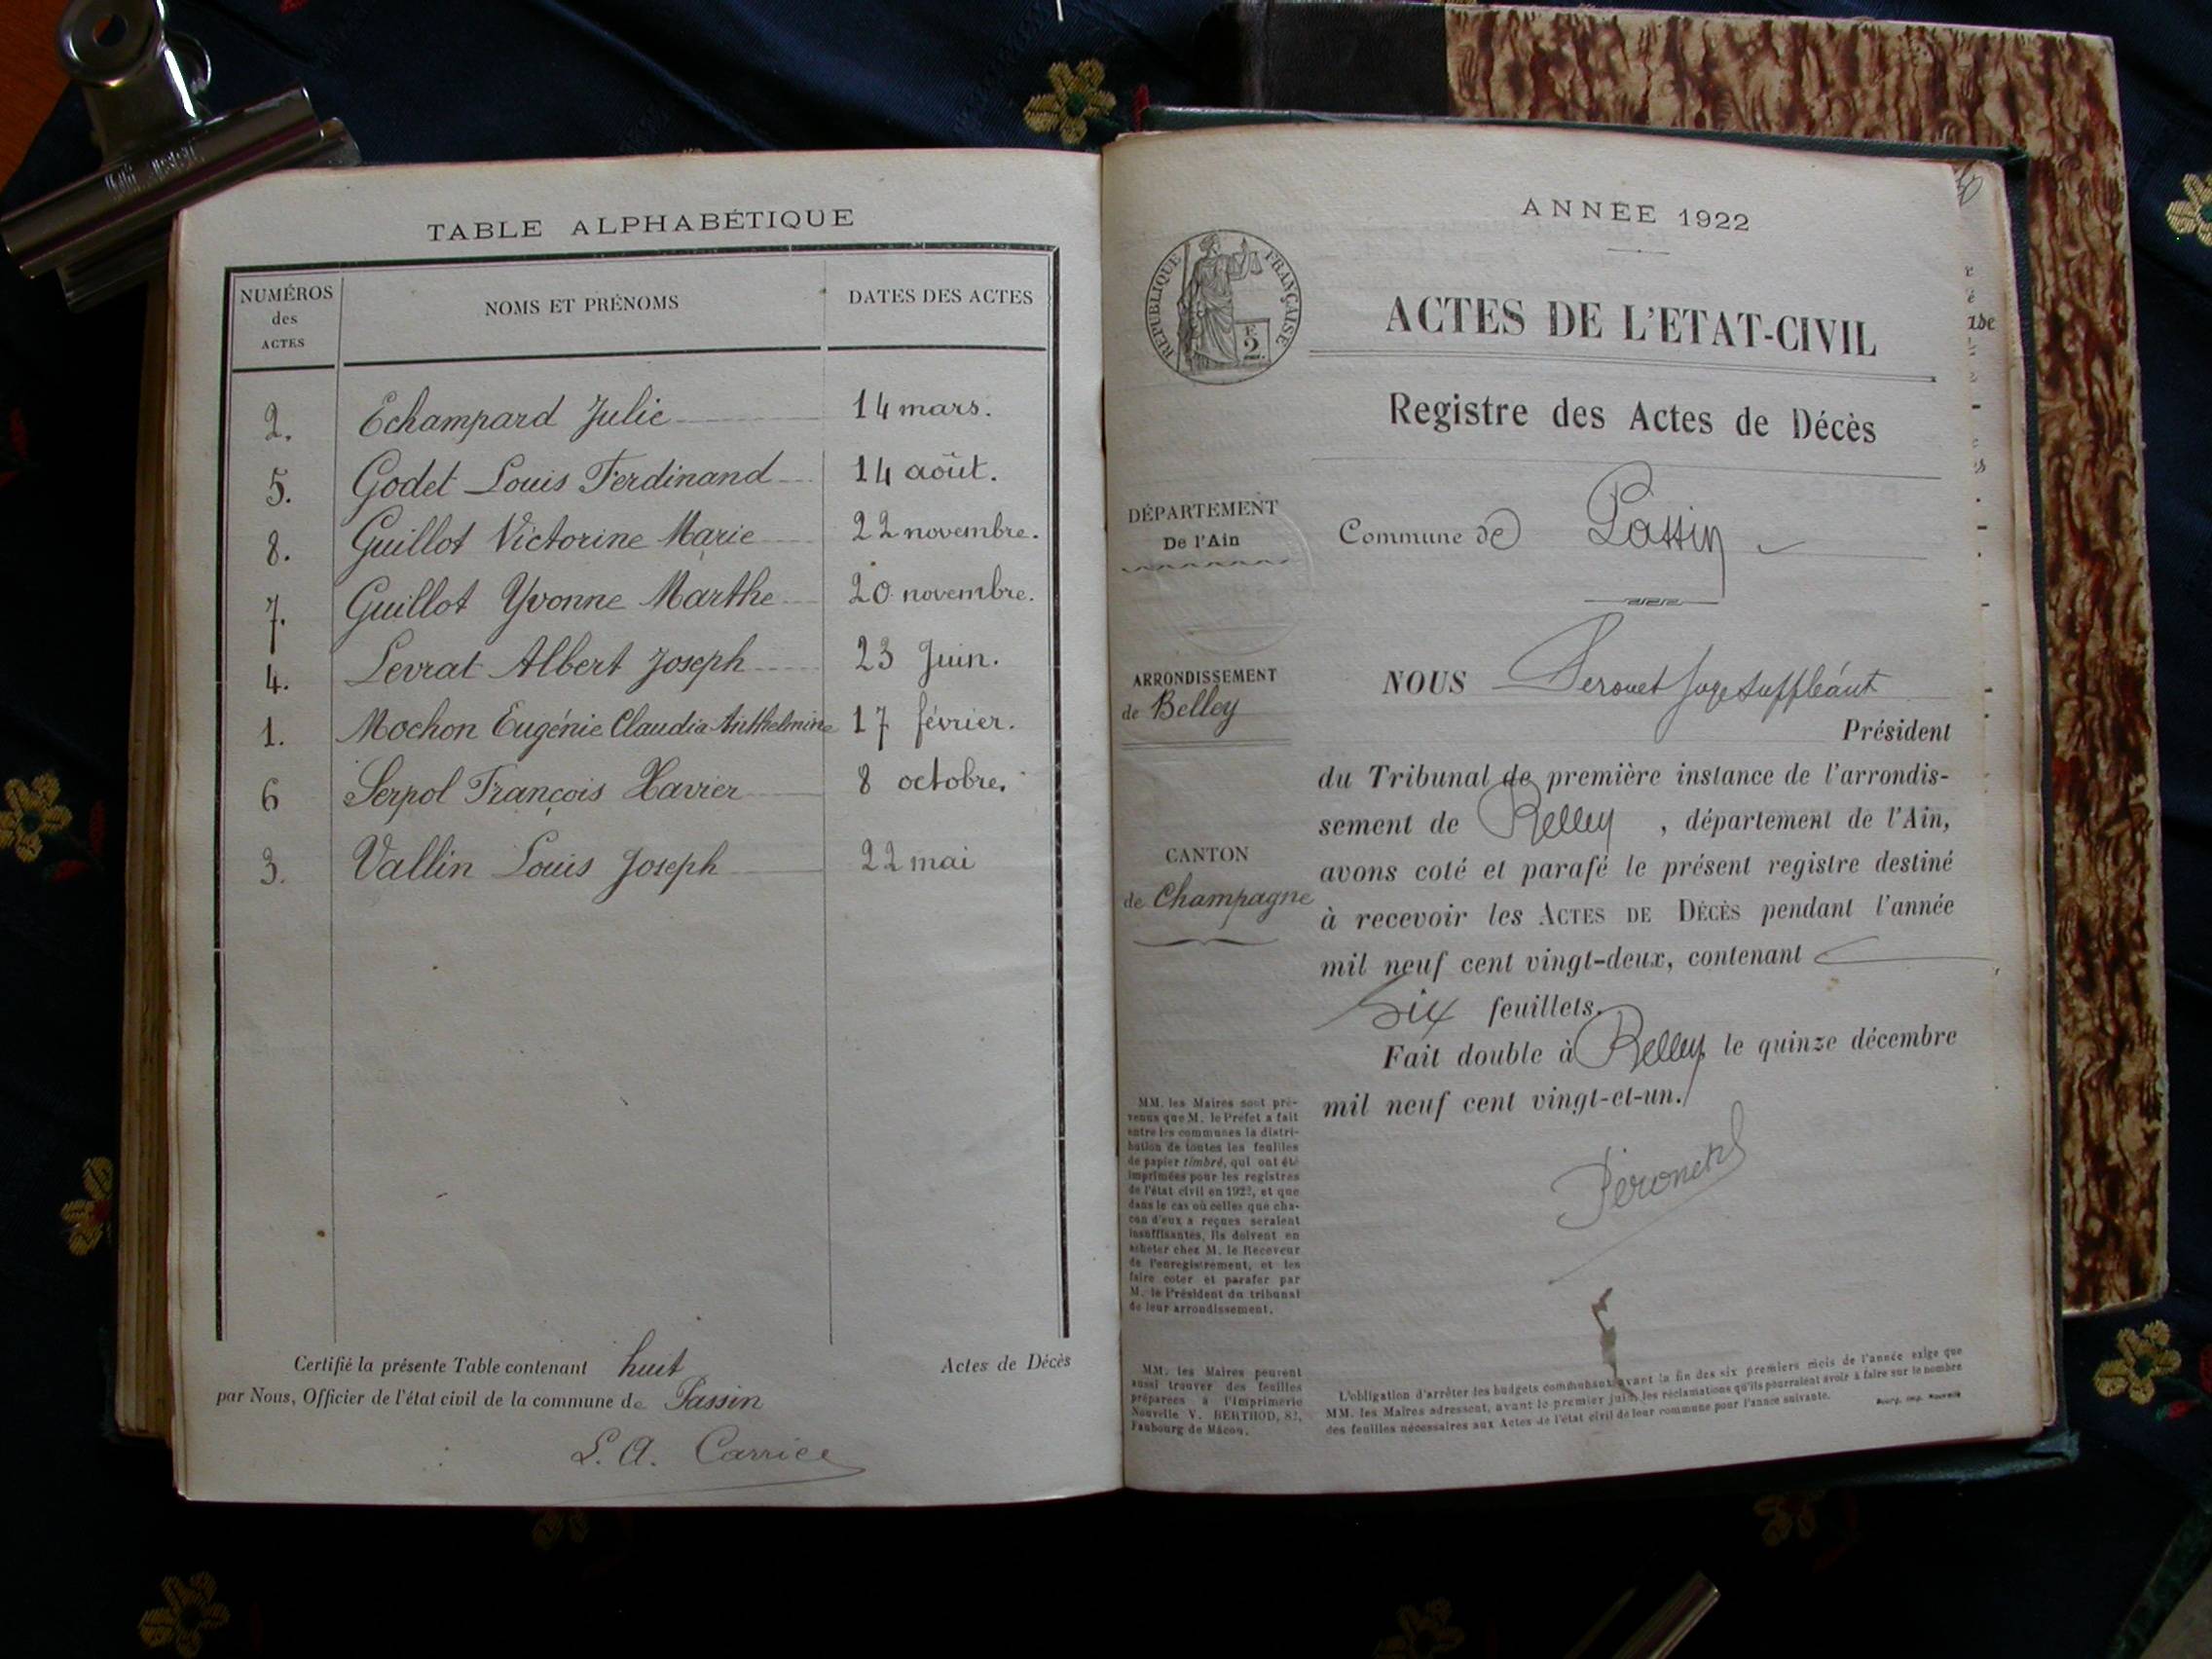 TABLE ALPHABÉTIQUE
NUMÉROS des ACTES
NOMS ET PRÉNOMS
DATES DES ACTES
2. Echampard Julie 14 mars.
5. Godet Louis Ferdinand 14 août.
8. Guillot Victorine Marie 22 novembre.
7. Guillot Yvonne Marthe 20 novembre.
4. Levrat Albert Joseph 23 Juin.
1. Mochon Eugénie Claudia Anthelmine 17 février.
6 Serpol François Xavier 8 octobre.
3. Vallin Louis Joseph 22 mai
Certifié la présente Table contenant huit Actes de Décès
par Nous, Officier de l'état civil de la commune de Passin
L. A. Carrier
ANNÉE 1922
RÉPUBLIQUE FRANÇAISE
2
ACTES DE L'ETAT-CIVIL
Registre des Actes de Décès
DÉPARTEMENT
De l'Ain
Commune de Passin
ARRONDISSEMENT
de Belley
CANTON
de Champagne
NOUS Peronet Juge Suppléant
Président
du Tribunal de première instance de l'arrondis-
sement de Belley, département de l'Ain,
avons coté et parafé le présent registre destiné
à recevoir les ACTES DE DÉCÈS pendant l'année
mil neuf cent vingt-deux, contenant
Six feuillets.
Fait double à Belley le quinze décembre
mil neuf cent vingt-et-un.
Péronet
MM. les Maires sont pré-
venus que M. le Préfet a fait
entre les communes la distri-
bution de toutes les feuilles
de papier timbré, qui ont été
imprimées pour les registres
de l'état civil en 1922, et que
dans le cas où celles que cha-
cun d'eux a reçues seraient
insuffisantes, ils doivent en
acheter chez M. le Receveur
de l'enregistrement, et les
faire coter et parafer par
M. le Président du tribunal
de leur arrondissement.
MM. les Maires peuvent
aussi trouver des feuilles
préparées à l'imprimerie
Nouvelle V. BERTHOD, 82,
Faubourg de Mâcon.
L'obligation d'arrêter les budgets communaux avant la fin des six premiers mois de l'année exige que
MM. les Maires adressent, avant le premier juin, les réclamations qu'ils pourraient avoir à faire sur le nombre
des feuilles nécessaires aux Actes de l'état civil de leur commune pour l'année suivante.
Bourg, imp. Nouvelle